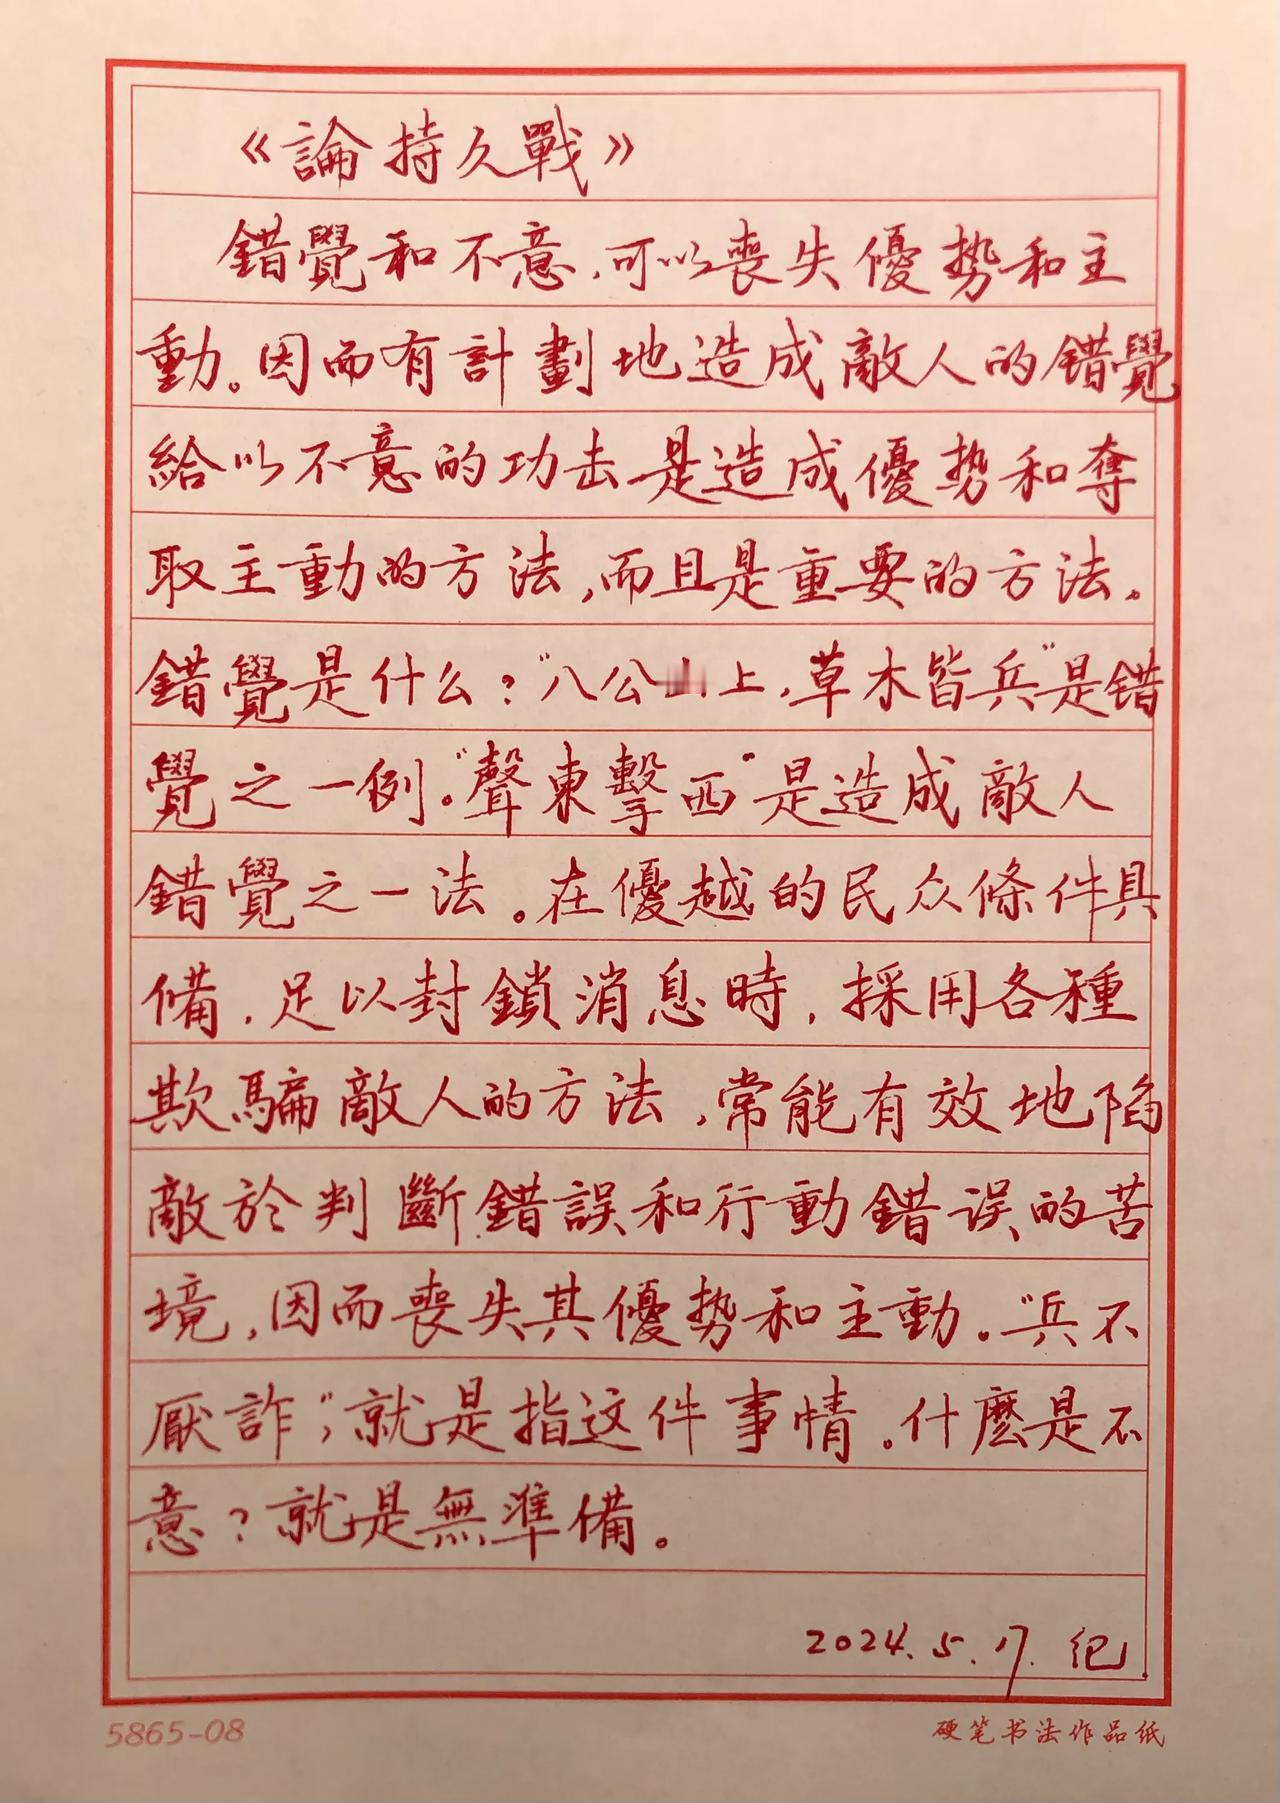 《論持久戰》
錯覺和不意，可以喪失優势和主
動。因而有計劃地造成敵人的錯覺
給以不意的功击是造成優势和奪
取主動的方法，而且是重要的方法。
錯覺是什么？“八公山上，草木皆兵”是錯
覺之一例。“聲東擊西”是造成敵人
錯覺之一法。在優越的民众條件具
備，足以封鎖消息時，採用各種
欺騙敵人的方法，常能有效地陷
敵於判斷錯誤和行動錯误的苦
境，因而喪失其優势和主動。“兵不
厭詐”，就是指这件事情。什麼是不
意？就是無準備。
2024.5.17.纪
5865-08
硬笔书法作品纸